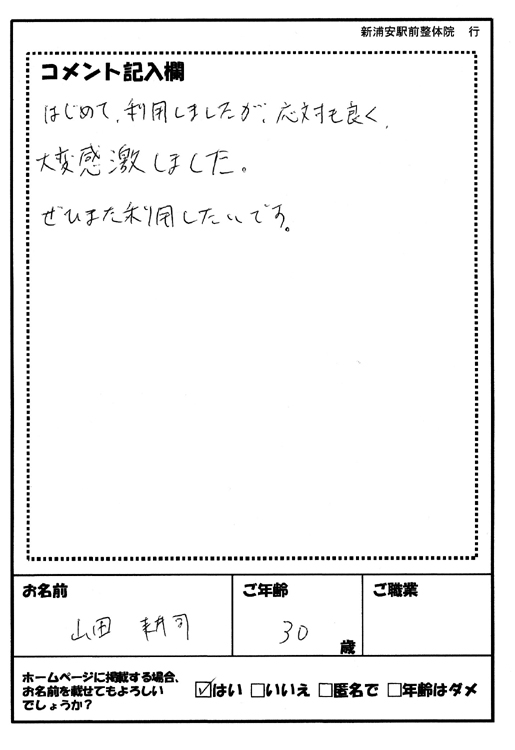 新浦安駅前整体院 行
コメント記入欄
はじめて、利用しましたが、応対も良く、
大変感激しました。
ぜひまた利用したいです。
お名前 ご年齢 ご職業
山田 耕司 30 歳
ホームページに掲載する場合、
お名前を載せてもよろしい
でしょうか?
☑はい □いいえ □匿名で □年齢はダメ